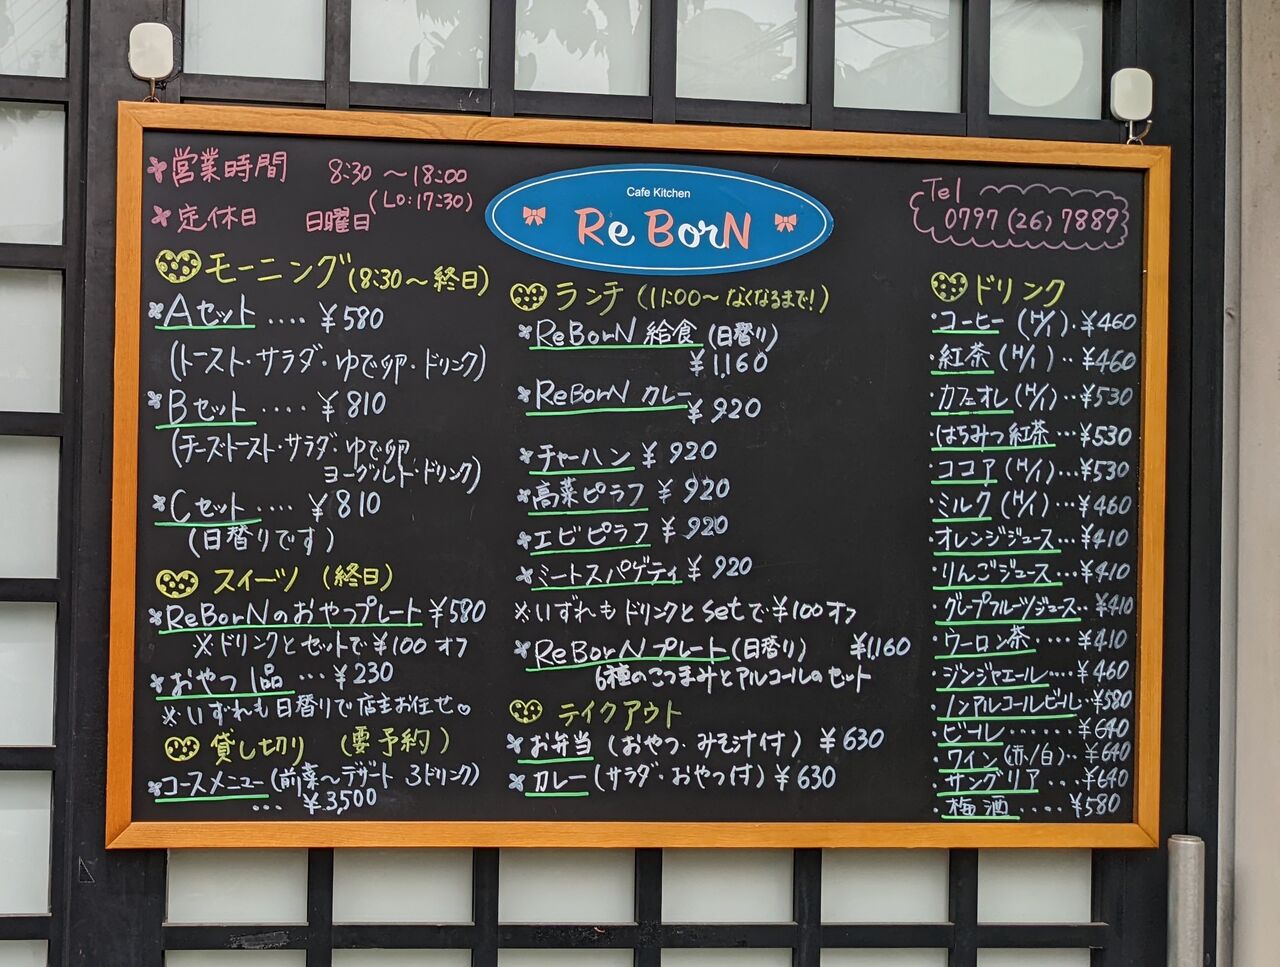 営業時間 8:30〜18:00
(LO:17:30)
定休日 日曜日
Cafe Kitchen
ReBorN
Tel
0797(26)7889
モーニング(8:30〜終日)
Aセット....¥580
(トースト・サラダ・ゆで卵・ドリンク)
Bセット....¥810
(チーズトースト・サラダ・ゆで卵
ヨーグルト・ドリンク)
Cセット....¥810
(日替りです)
スイーツ(終日)
ReBorNのおやつプレート¥580
※ドリンクとセットで¥100オフ
おやつ1品...¥230
※いずれも日替りで店主お任せ♡
貸し切り(要予約)
コースメニュー(前菜〜デザート 3ドリンク)
...¥3,500
ランチ(11:00〜なくなるまで!)
ReBorN給食(日替り)
¥1,160
ReBorNカレー¥920
チャーハン¥920
高菜ピラフ¥920
エビピラフ¥920
ミートスパゲティ¥920
※いずれもドリンクとsetで¥100オフ
ReBorNプレート(日替り) ¥1,160
6種のおつまみとアルコールのセット
テイクアウト
お弁当(おやつ・みそ汁付)¥630
カレー(サラダ・おやつ付)¥630
ドリンク
・コーヒー(H/I)・¥460
・紅茶(H/I)..¥460
・カフェオレ(H/I)..¥530
・はちみつ紅茶...¥530
・ココア(H/I)...¥530
・ミルク(H/I)...¥460
・オレンジジュース...¥410
・りんごジュース...¥410
・グレープフルーツジュース..¥410
・ウーロン茶....¥410
・ジンジャエール....¥460
・ノンアルコールビール..¥580
・ビール......¥640
・ワイン(赤/白)..¥640
・サングリア...¥640
・梅酒....¥580